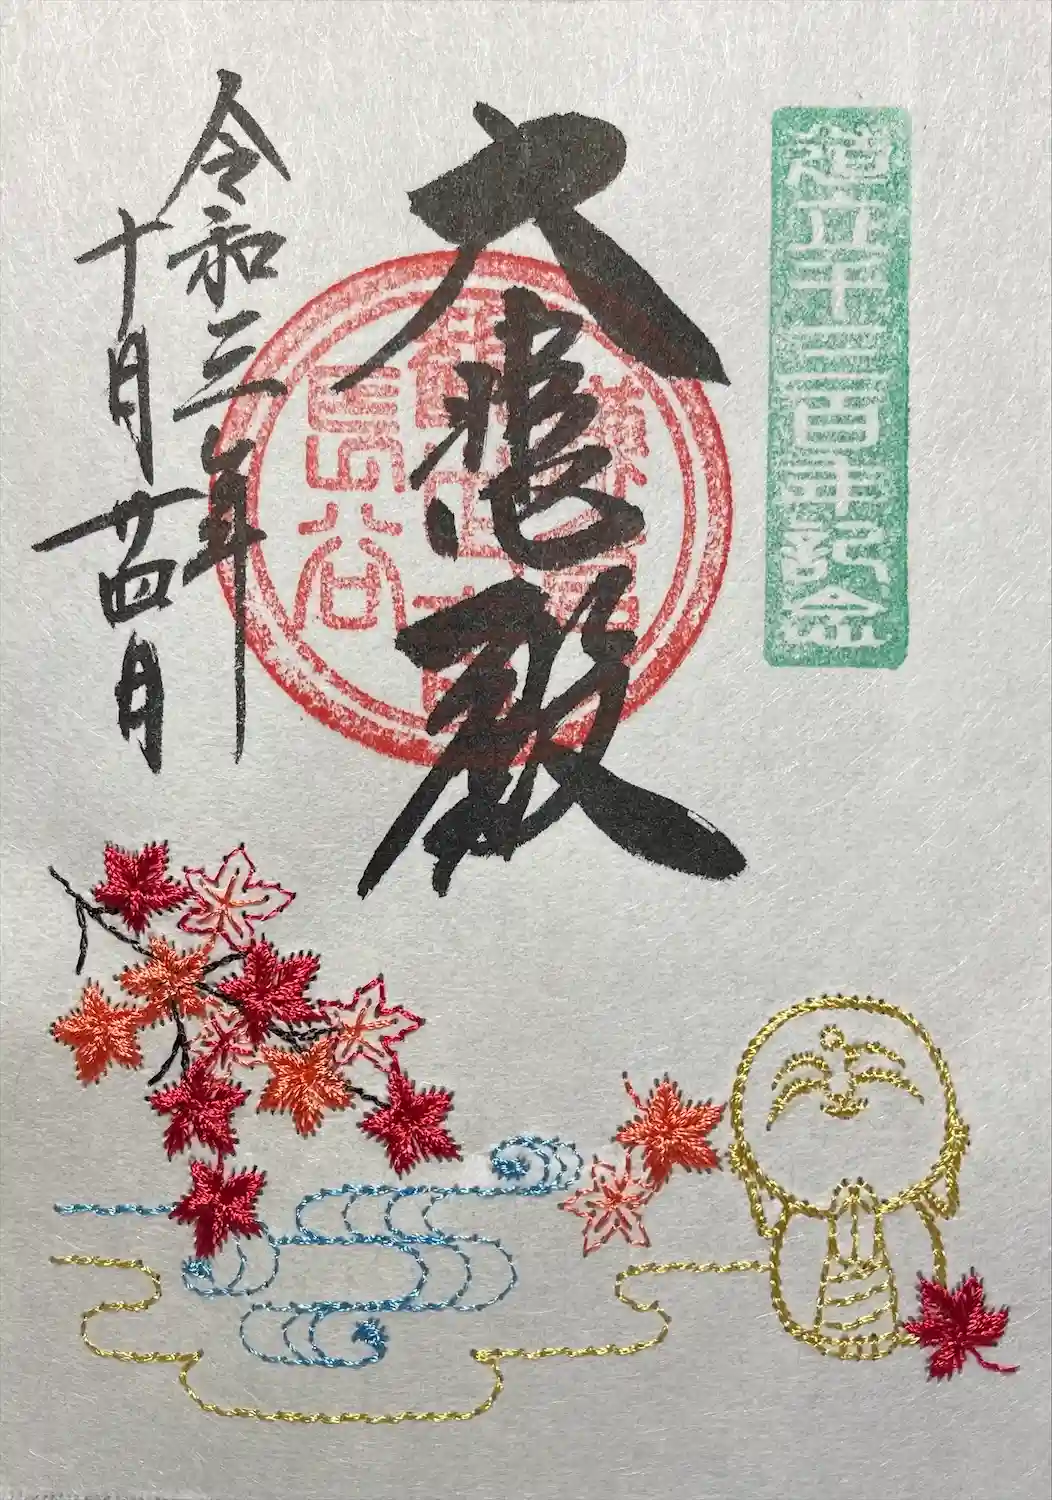 造立千三百年記念
大悲殿
長谷
令和三年
十月廿四日